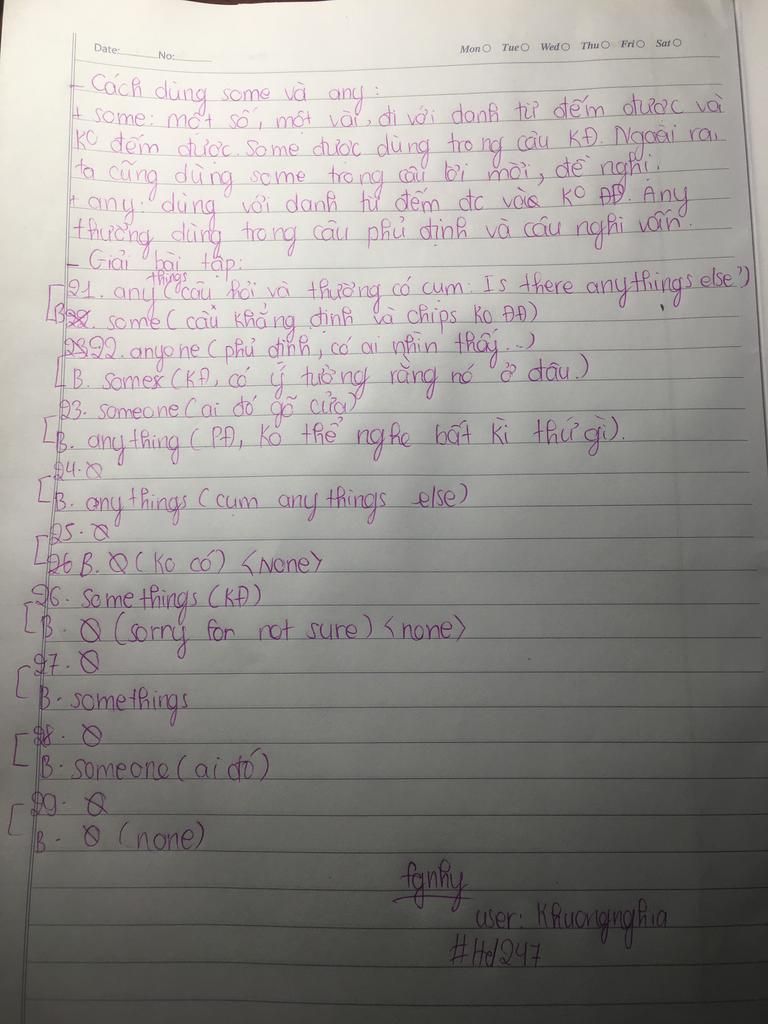 Date: No: Mon Tue Wed Thu Fri Sat
- Cách dùng some và any:
+ some: một số, một vài, đi với danh từ đếm được và
KO đếm được. Some được dùng trong câu KĐ. Ngoài ra,
ta cũng dùng some trong câu lời mời, đề nghị.
+ any: dùng với danh từ đếm đc và KO ĐĐ. Any
thường dùng trong câu phủ định và câu nghi vấn.
- Giải bài tập:
21. anythings (câu hỏi và thường có cụm: Is there anythings else?)
B. some (câu khẳng định và chips KO ĐĐ)
22. anyone (phủ định, có ai nhìn thấy...)
B. some (KĐ, có ý tưởng rằng nó ở đâu.)
23. someone (ai đó gõ cửa)
B. anything (PĐ, KO thể nghe bất kì thứ gì).
24. Ø
B. anythings (cụm anythings else)
25. Ø
B. Ø (KO có) <None>
26. Somethings (KĐ)
B. Ø (sorry for not sure) <none>
27. Ø
B. somethings
28. Ø
B. someone (ai đó)
29. Ø
B. Ø (none)
fgnhy
user: Khuongnghia
#Hd247